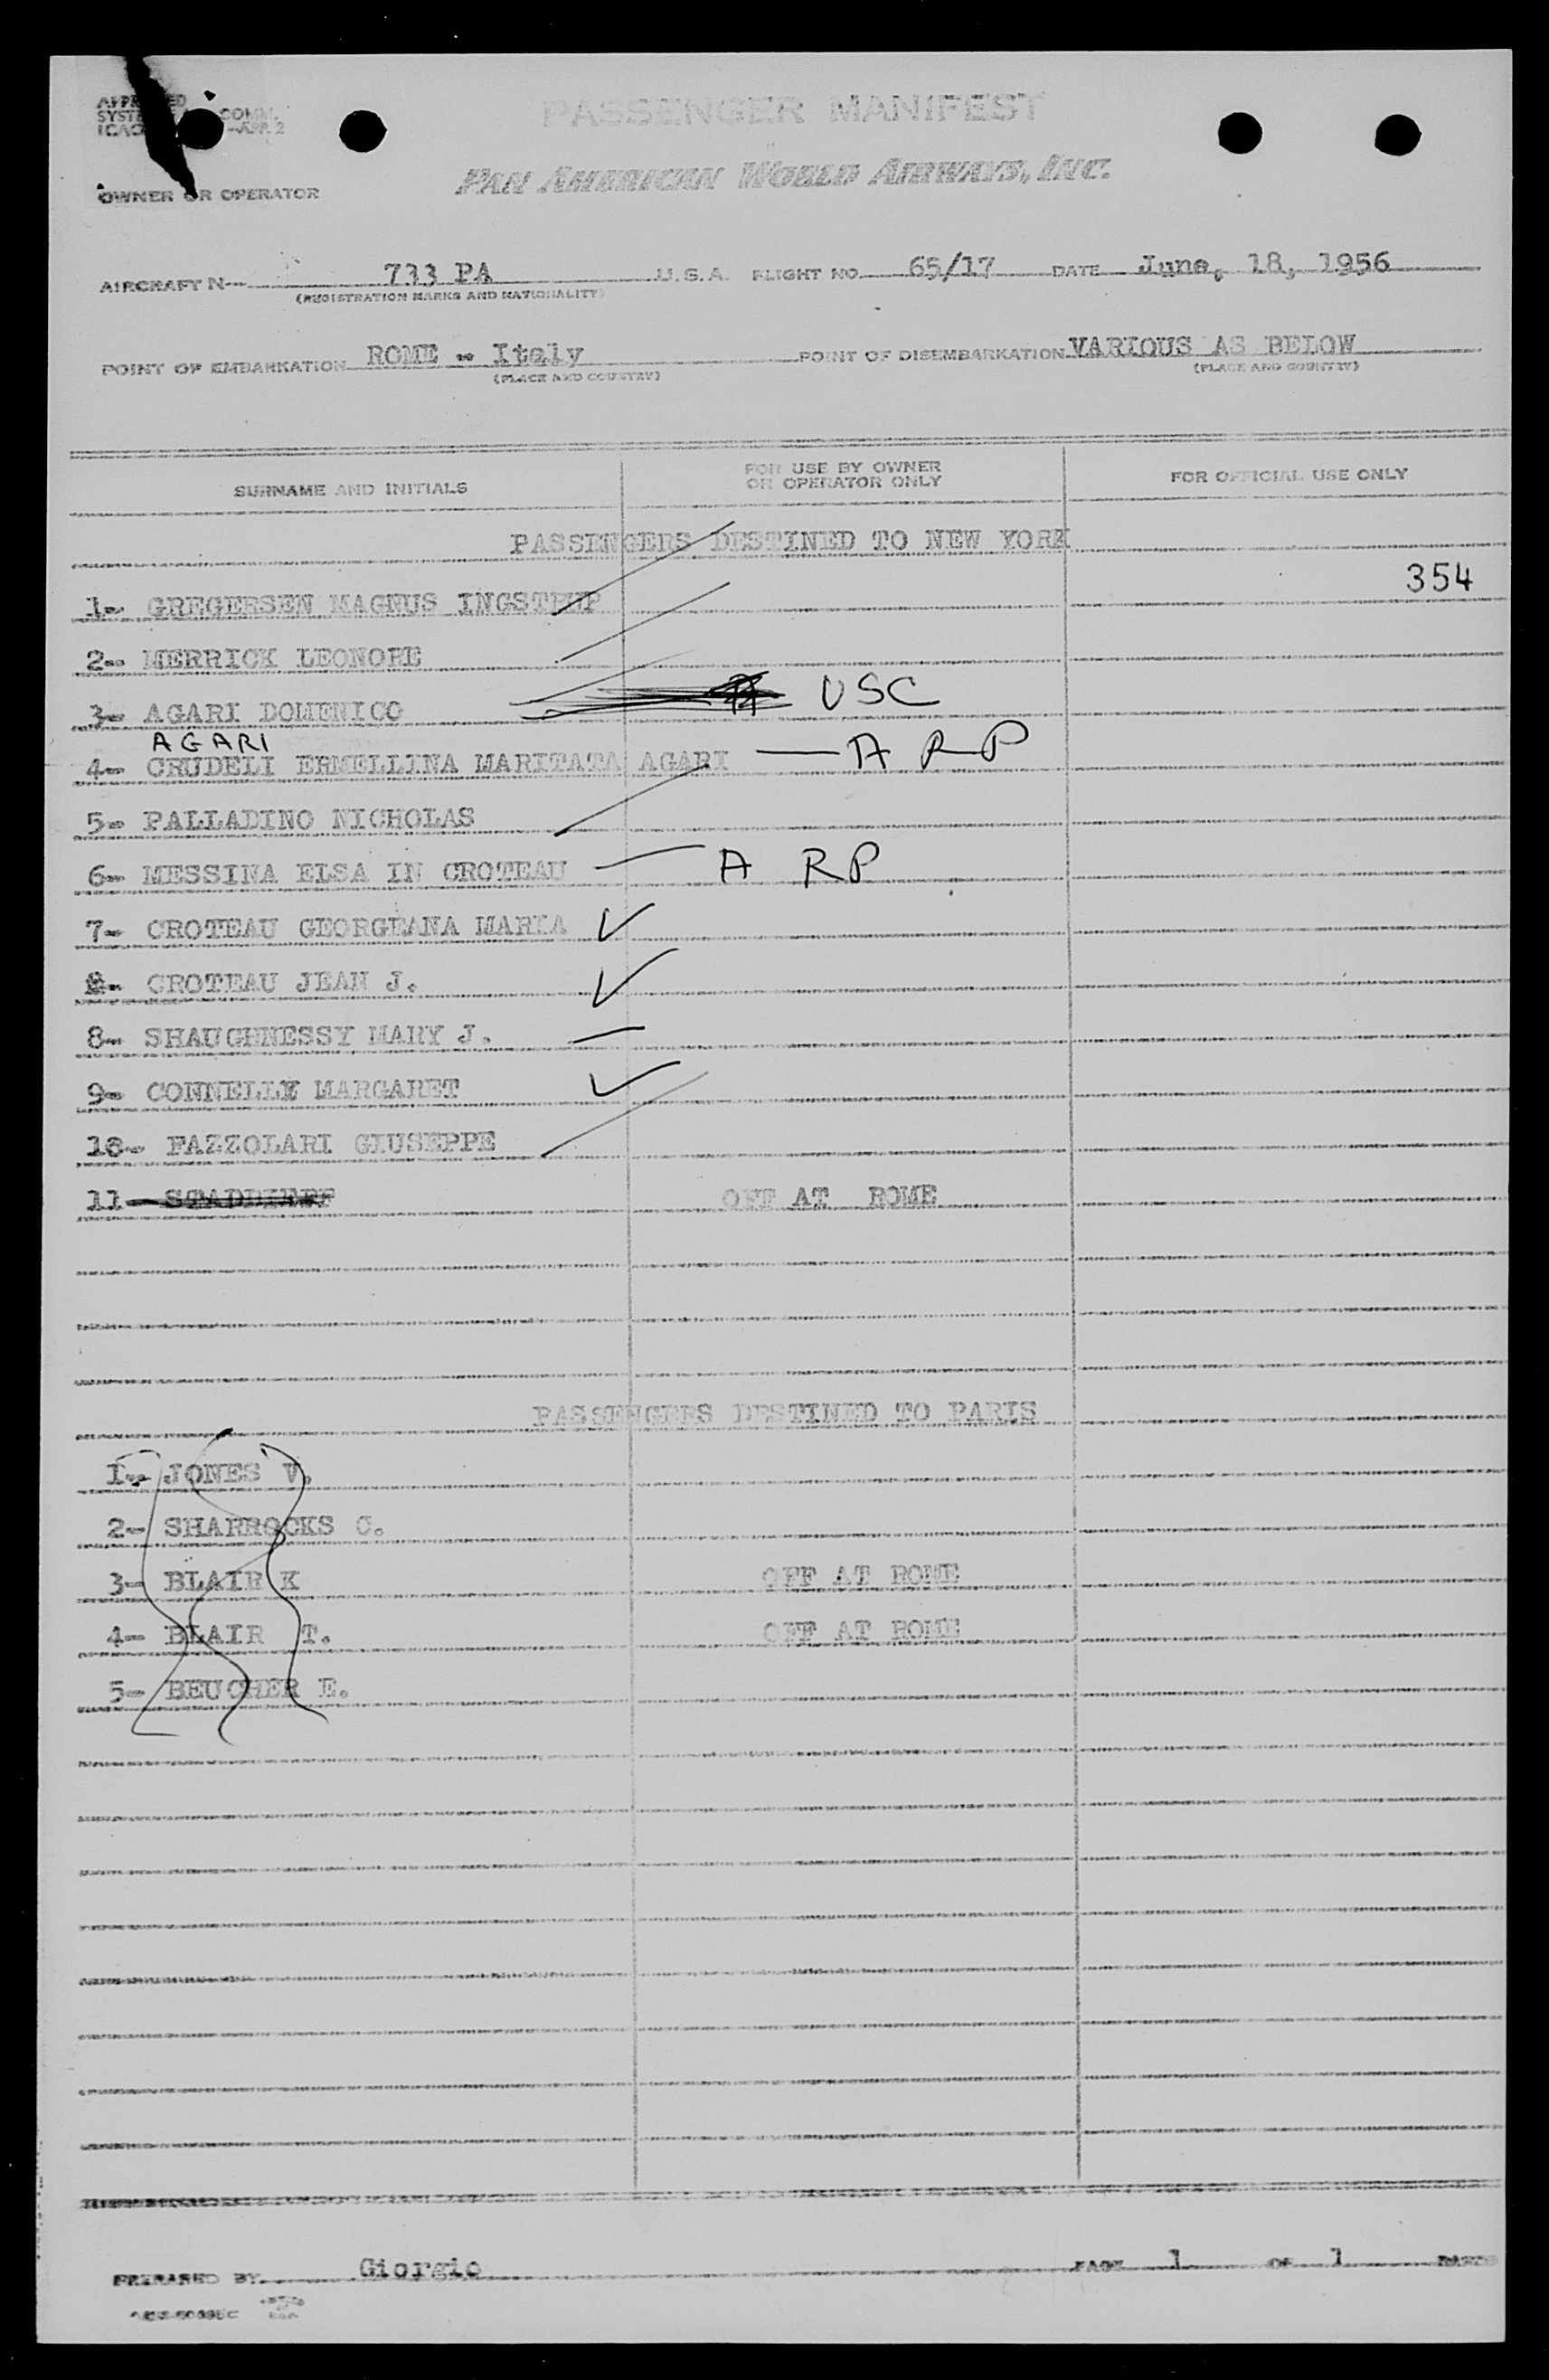 PASSENGER MANIFEST
PAN AMERICAN WORLD AIRWAYS, INC.
OWNER OR OPERATOR
AIRCRAFT N 733 PA U.S.A. FLIGHT NO. 65/17 DATE June, 18, 1956
(REGISTRATION MARKS AND NATIONALITY)
POINT OF EMBARKATION ROME - Italy POINT OF DISEMBARKATION VARIOUS AS BELOW
(PLACE AND COUNTRY) (PLACE AND COUNTRY)
SURNAME AND INITIALS FOR USE BY OWNER OR OPERATOR ONLY FOR OFFICIAL USE ONLY
PASSENGERS DESTINED TO NEW YORK
354
1- GREGERSEN MAGNUS INGSTRUP
2- MERRICK LEONORE
3- AGARI DOMENICO USC
AGARI
4- CRUDELI ERMELLINA MARITATA AGARI — A R P
5- PALLADINO NICHOLAS
6- MESSINA ELSA IN CROTEAU — A R P
7- CROTEAU GEORGEANA MARIA ✓
CROTEAU JEAN J. ✓
8- SHAUGHNESSY MARY J. —
9- CONNELLY MARGARET ✓
10- FAZZOLARI GIUSEPPE
11- OFF AT ROME
PASSENGERS DESTINED TO PARIS
1- JONES V.
2- SHARROCKS C.
3- BLAIR K OFF AT ROME
4- BLAIR T. OFF AT ROME
5- BEUCHER E.
PREPARED BY Giorgio PAGE 1 OF 1